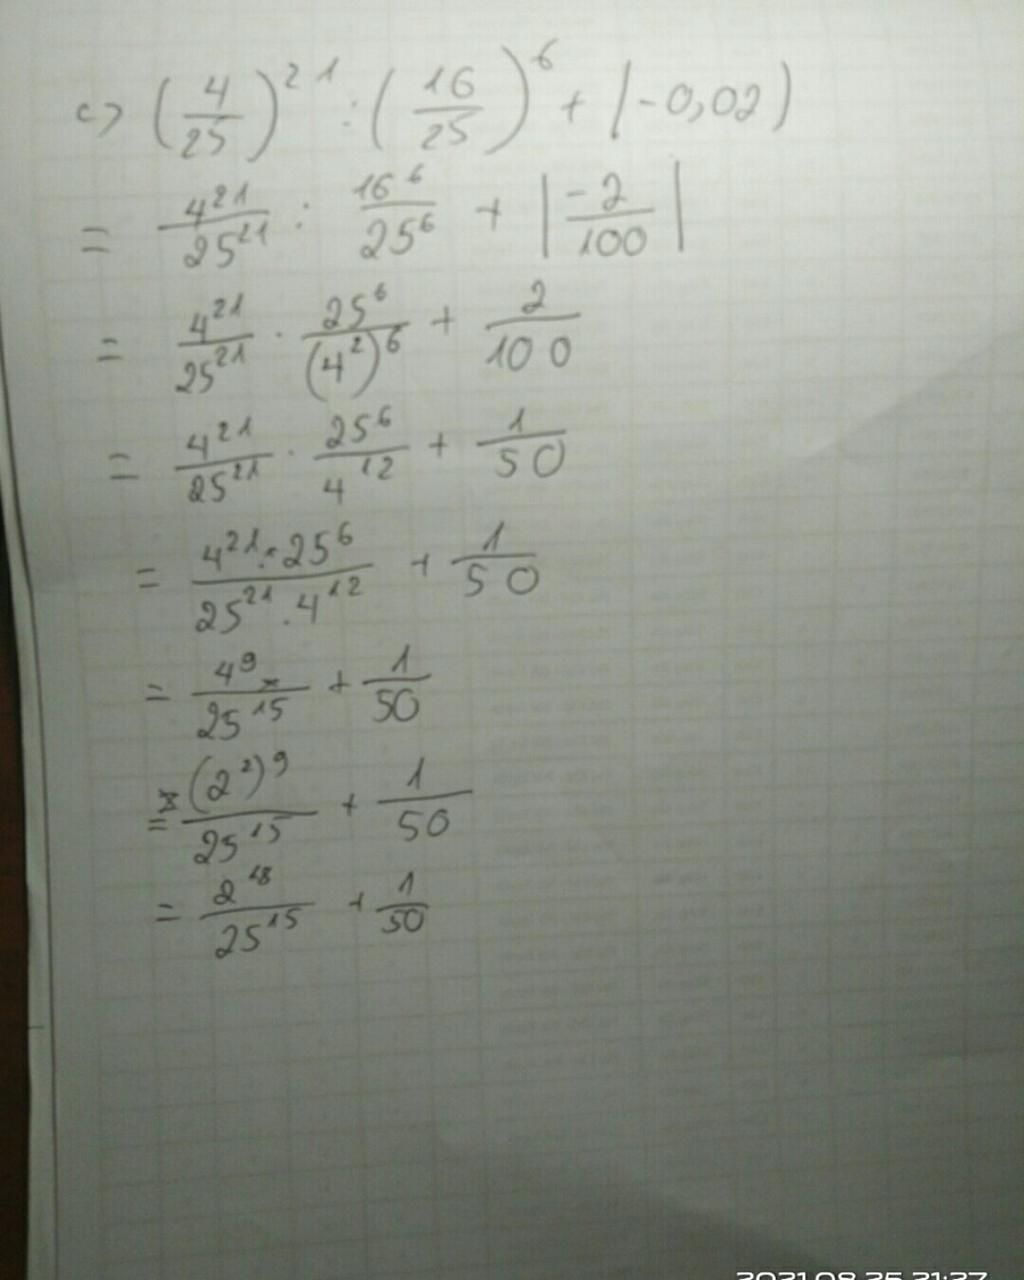 c) (4/25)^21 : (16/25)^6 + |-0,02)
= 4^21/25^21 : 16^6/25^6 + |-2/100|
= 4^21/25^21 . 25^6/(4^2)^6 + 2/100
= 4^21/25^21 . 25^6/4^12 + 1/50
= 4^21 . 25^6/25^21 . 4^12 + 1/50
= 4^9/25^15 + 1/50
= (2^2)^9/25^15 + 1/50
= 2^18/25^15 + 1/50